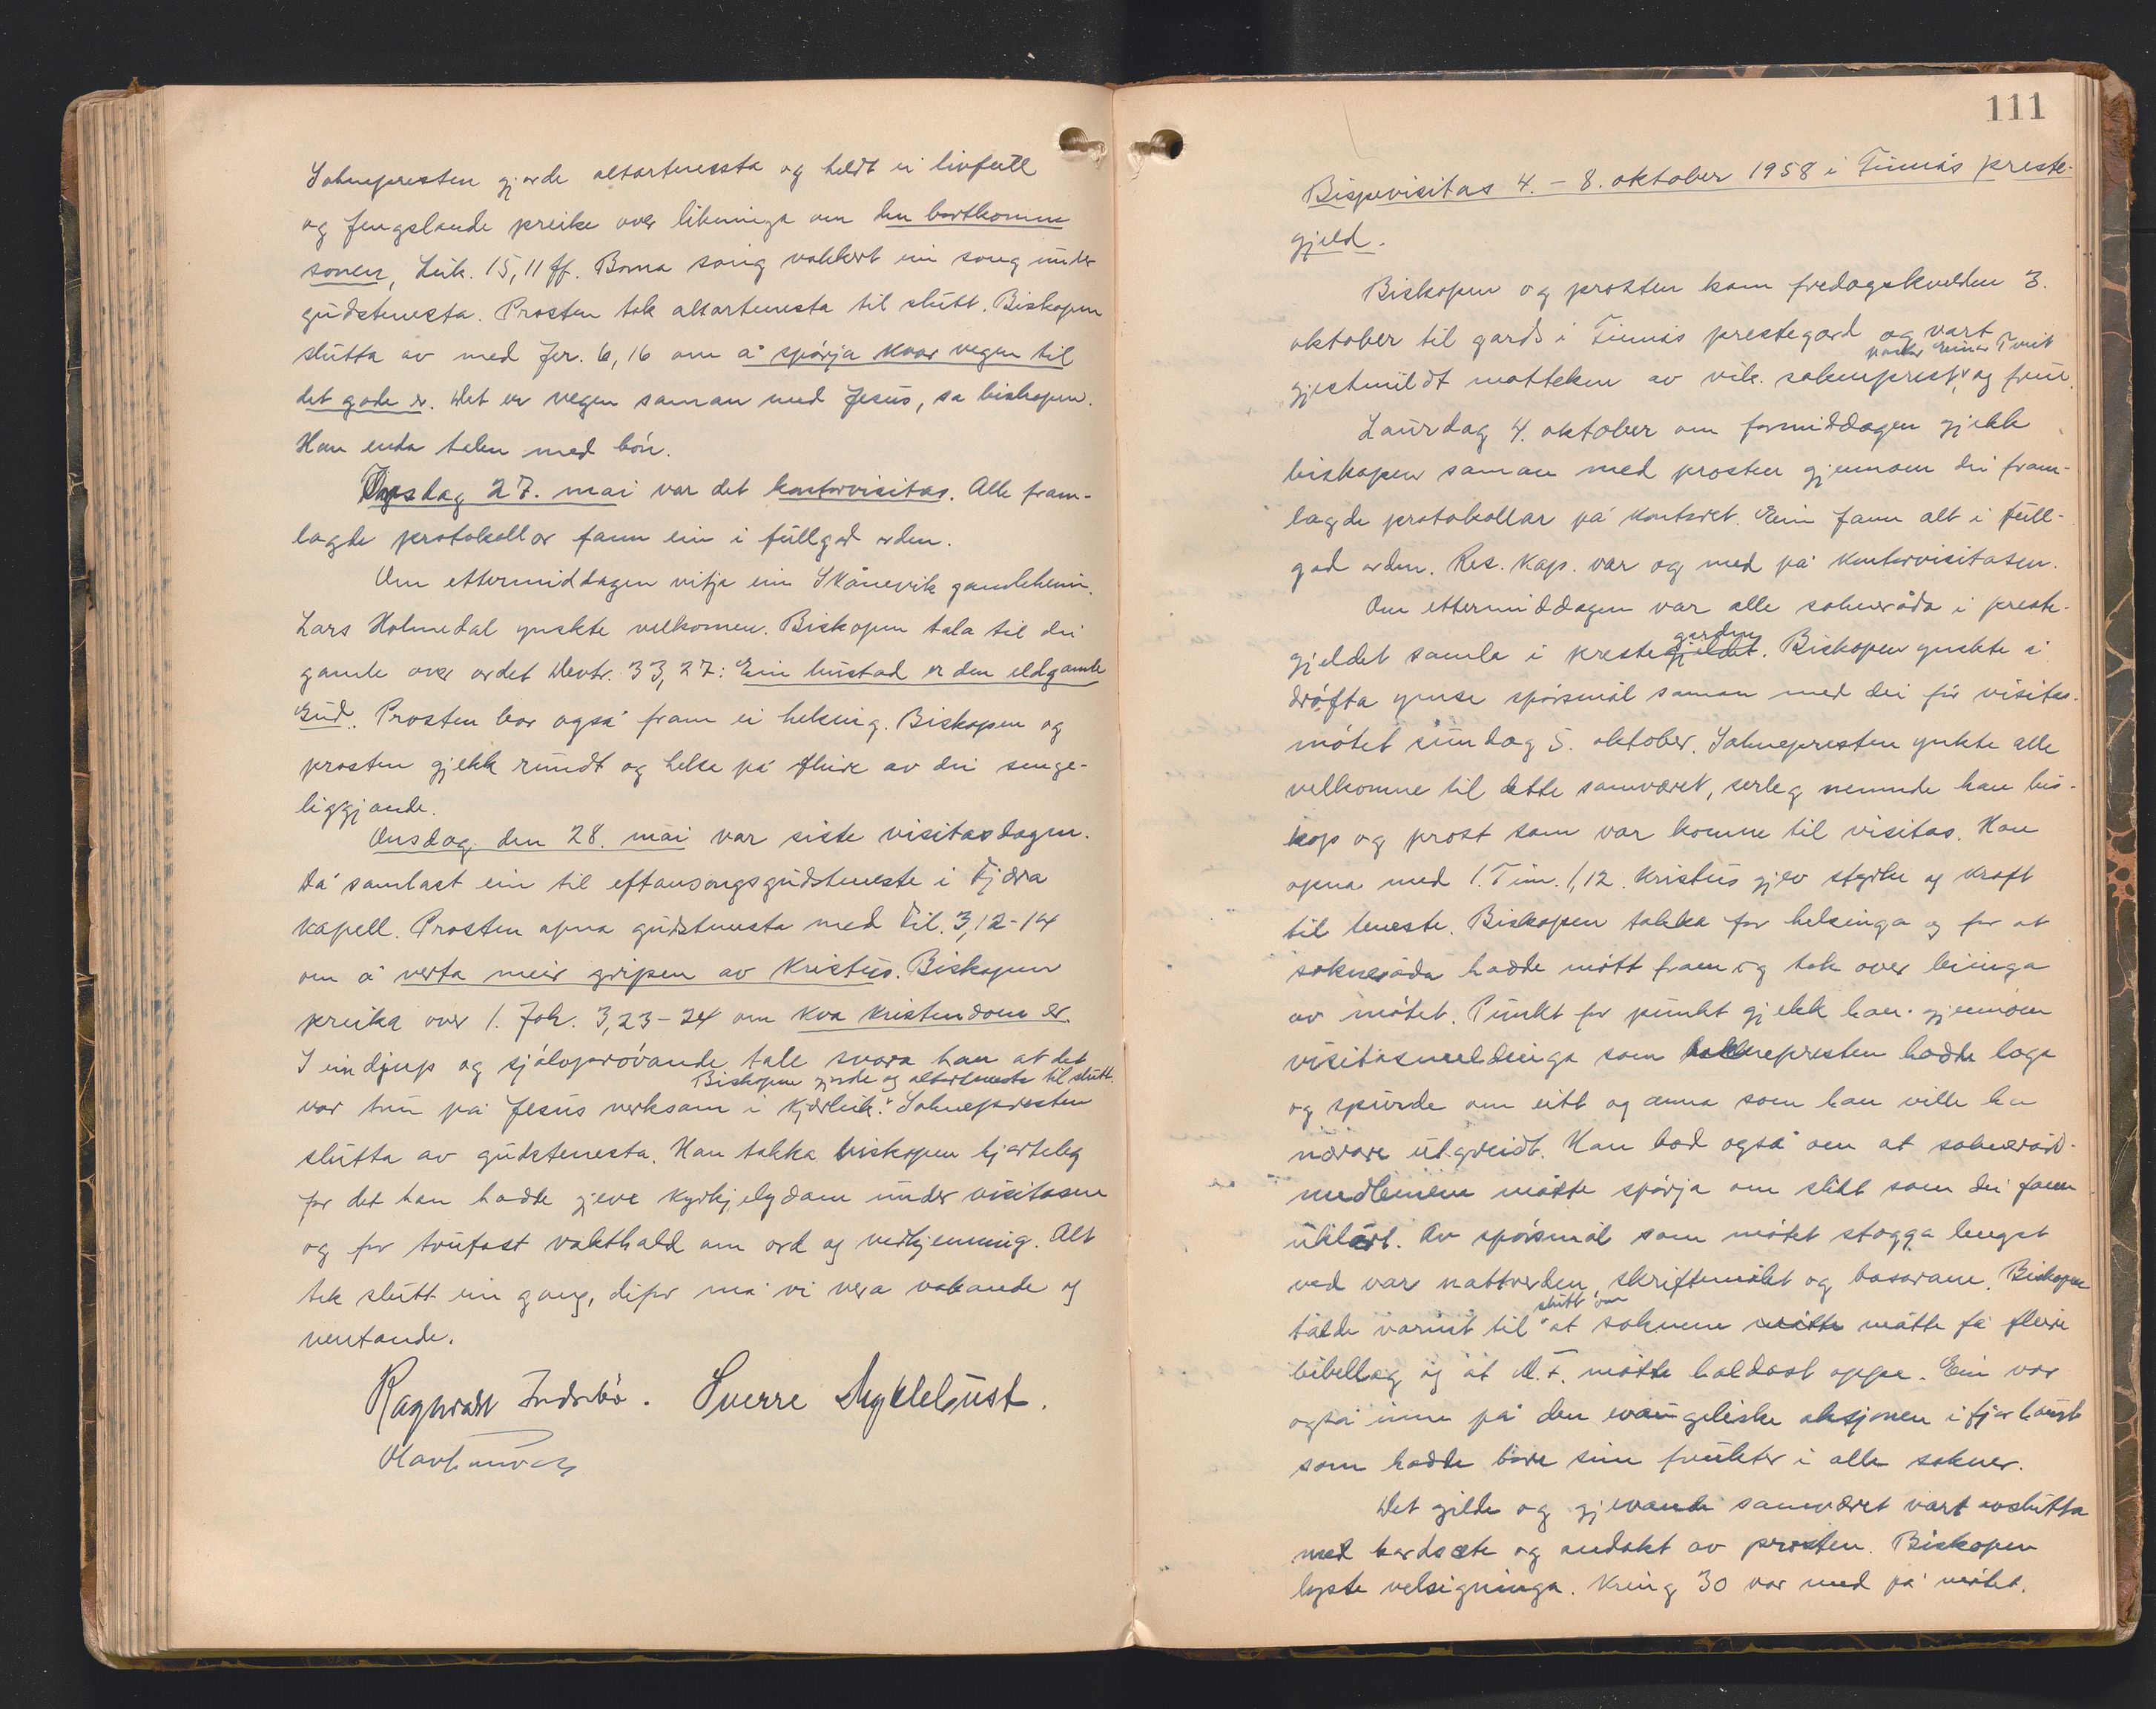 Soknepresten gjorde altartenesta og heldt ei livfull
og fengslande preike over likninga om den bortkomne
sonen, Luk. 15,11 ff. Borna song vakkert ein song under
gudstenesta. Prosten tok altartenesta til slutt. Biskopen
slutta av med Jer. 6,16 om å spørja kvar vegen til
det gode er. Det er vegen saman med Jesus, sa biskopen.
Han enda talen med bøn.
Tysdag 27. mai var det kontorvisitas. Alle fram-
lagde protokollar fann ein i fullgod orden.
Om ettermiddagen vitja ein Skånevik gamleheim.
Lars Holmedal ynskte velkomen. Biskopen tala til dei
gamle over ordet Devtr. 33,27: Ein bustad er den eldgamle
Gud. Prosten bar også fram ei helsing. Biskopen og
prosten gjekk rundt og helsa på fleire av dei senge-
liggjande.
Onsdag den 28. mai var siste visitasdagen.
Då samlast ein til eftansongsgudsteneste i Fjæra
kapell. Prosten opna gudstenesta med Fil. 3,12-14
om å verta meir gripen av Kristus. Biskopen
preika over 1. Joh. 3,23-24 om kva kristendom er.
I ein djup og sjølvprøvande tale svara han at det
Biskopen gjorde og altarteneste til slutt.
var tru på Jesus verksam i kjærleik. Soknepresten
slutta av gudstenesta. Han takka biskopen hjarteleg
for det han hadde gjeve kyrkjelydam under visitasen
og for trufast vakthald om ord og vedkjenning. Alt
tek slutt ein gong, difor må vi vera vakande og
ventande.
Ragnvald Indrebø. Sverre Myklebust.
111
Bispevisitas 4. - 8. oktober 1958 i Finnås preste-
gjeld.
Biskopen og prosten kom fredagskvelden 3.
oktober til gards i Finnås prestegard og vart
pastor Einar Tveit
gjestmildt motteken av vik. sokneprest og frue.
Laurdag 4. oktober om formiddagen gjekk
biskopen saman med prosten gjennom dei fram-
lagde protokollar på kontoret. Ein fann alt i full-
god orden. Res. kap. var og med på kontorvisitasen.
Om ettermiddagen var alle sokneråda i preste-
garden
gjeldet samla i prestegjeldet. Biskopen ynskte å
drøfta ymse spørsmål saman med dei før visitas-
møtet sundag 5. oktober. Soknepresten ynkte alle
velkomne til dette samværet, serleg nemnde han bis-
kop og prost som var komne til visitas. Han
opna med 1. Tim. 1,12. Kristus gjev styrke og kraft
til teneste. Biskopen takka for helsinga og for at
sokneråda hadde møtt fram og tok over leiinga
av møtet. Punkt for punkt gjekk han gjennom
visitasmeldinga som soknepresten hadde laga
og spurde om eitt og anna som han ville ha
nærare utgreidt. Han bad også om at sokneråd-
medlemene måtte spørja om slikt som dei fann
uklårt. Av spørsmål som møtet stogga lengst
ved var nattverden, skriftemålet og basarane. Biskopen
slutt om
talde varmt til at soknene måtte måtte få fleire
bibellag og at M.F. måtte haldast oppe. Ein var
også inne på den evangeliske aksjonen i fjor haust
som hadde bore sine frukter i alle sokner.
Det gilde og gjevande samværet vart avslutta
med bordsete og andakt av prosten. Biskopen
lyste velsigninga. Kring 30 var med på møtet.